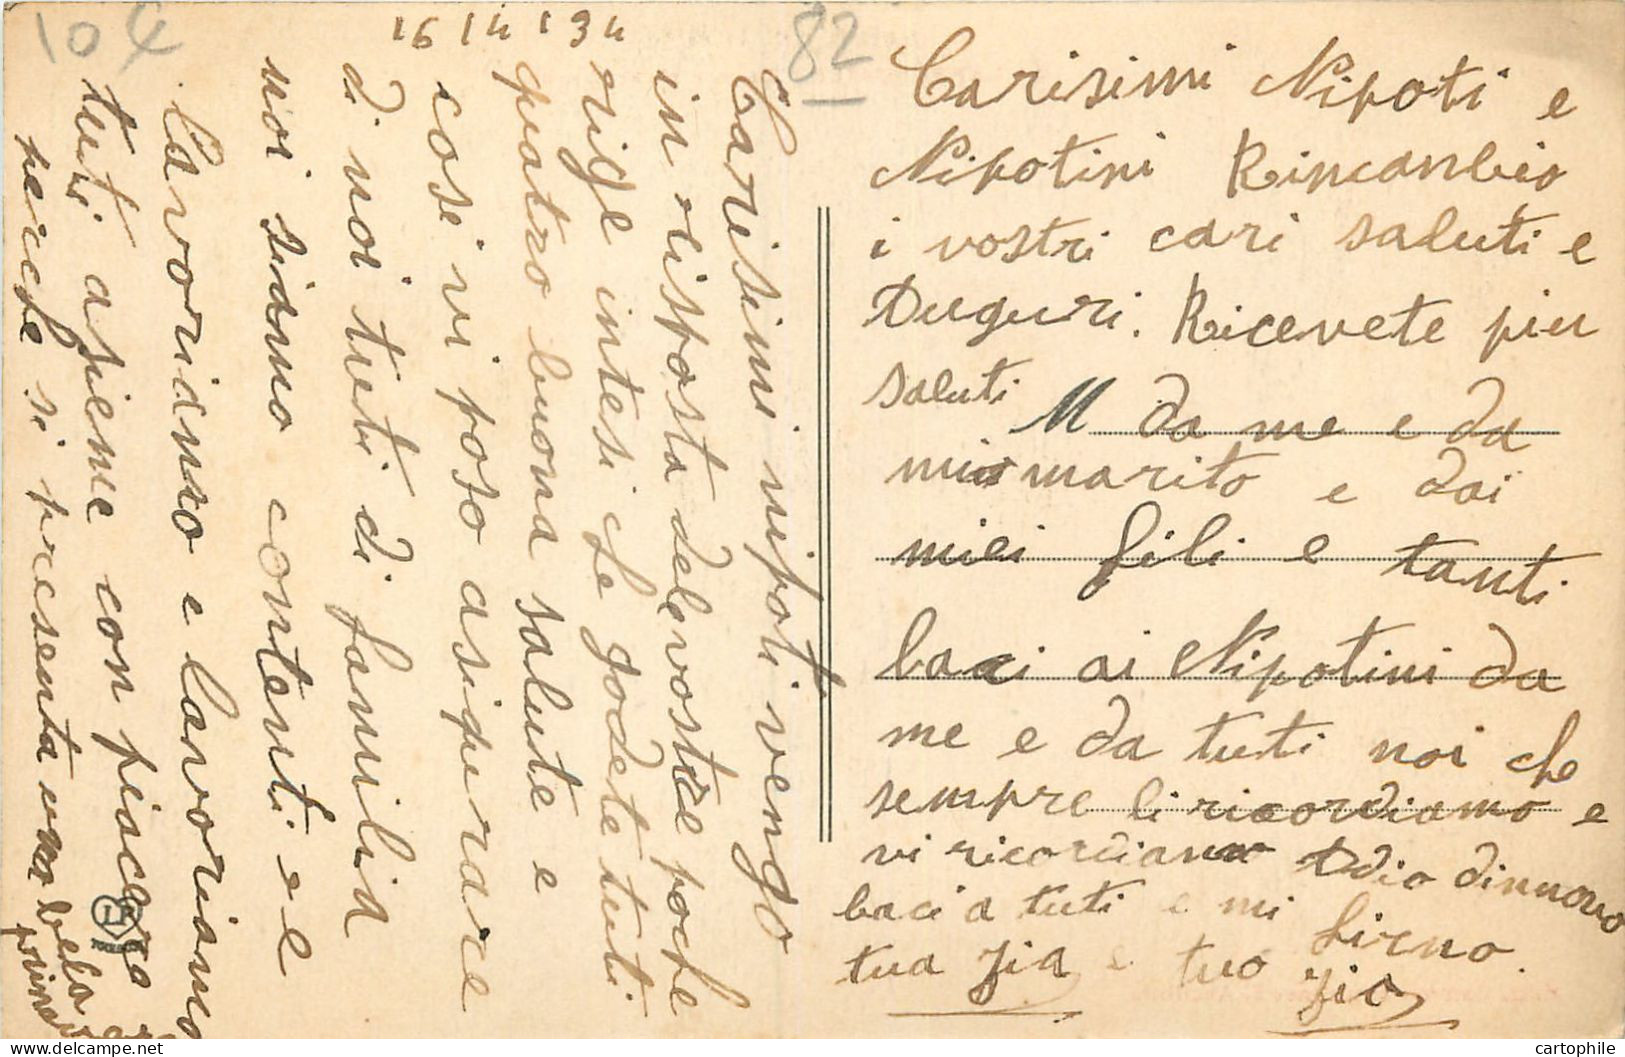 104
16 14 134
82
Carisimi nipoti vengo
in risposta dele vostre poche
rige intesi che godete tuti
quatro buona salute e
cosi vi poso asiqurare
di noi tuti di familia
noi siamo contenti e e
lavoriamo e lavoriamo
tuti asieme con piacere
perche si presenta una bela
prima
LP
Carisimi Nipoti e
Nipotini Rincanbio
i vostri cari saluti e
Auguri. Ricevete piu
saluti
M da me e da
mio marito e dai
miei fili e tanti
baci ai Nipotini da
me e da tuti noi che
sempre li ricordiamo e
vi ricordiamo Adio dinuovo
baci a tuti e mi firmo.
tua zia e tuo zio
cartophile